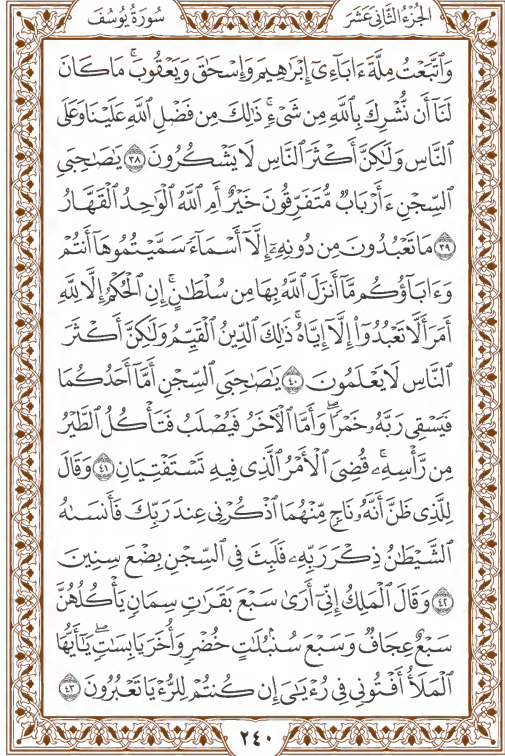 الجُزْءُ الثَّانِي عَشَرَ
سُورَةُ يُوسُفَ
وَٱتَّبَعۡتُ مِلَّةَ ءَابَآءِيٓ إِبۡرَٰهِيمَ وَإِسۡحَٰقَ وَيَعۡقُوبَۚ مَا كَانَ
لَنَآ أَن نُّشۡرِكَ بِٱللَّهِ مِن شَيۡءٖۚ ذَٰلِكَ مِن فَضۡلِ ٱللَّهِ عَلَيۡنَا وَعَلَى
ٱلنَّاسِ وَلَٰكِنَّ أَكۡثَرَ ٱلنَّاسِ لَا يَشۡكُرُونَ ٣٨ يَٰصَٰحِبَيِ
ٱلسِّجۡنِ ءَأَرۡبَابٞ مُّتَفَرِّقُونَ خَيۡرٌ أَمِ ٱللَّهُ ٱلۡوَٰحِدُ ٱلۡقَهَّارُ
٣٩ مَا تَعۡبُدُونَ مِن دُونِهِۦٓ إِلَّآ أَسۡمَآءٗ سَمَّيۡتُمُوهَآ أَنتُمۡ
وَءَابَآؤُكُم مَّآ أَنزَلَ ٱللَّهُ بِهَا مِن سُلۡطَٰنٍۚ إِنِ ٱلۡحُكۡمُ إِلَّا لِلَّهِ
أَمَرَ أَلَّا تَعۡبُدُوٓاْ إِلَّآ إِيَّاهُۚ ذَٰلِكَ ٱلدِّينُ ٱلۡقَيِّمُ وَلَٰكِنَّ أَكۡثَرَ
ٱلنَّاسِ لَا يَعۡلَمُونَ ٤٠ يَٰصَٰحِبَيِ ٱلسِّجۡنِ أَمَّآ أَحَدُكُمَا
فَيَسۡقِي رَبَّهُۥ خَمۡرٗاۖ وَأَمَّا ٱلۡأٓخَرُ فَيُصۡلَبُ فَتَأۡكُلُ ٱلطَّيۡرُ
مِن رَّأۡسِهِۦۚ قُضِيَ ٱلۡأَمۡرُ ٱلَّذِي فِيهِ تَسۡتَفۡتِيَانِ ٤١ وَقَالَ
لِلَّذِي ظَنَّ أَنَّهُۥ نَاجٖ مِّنۡهُمَا ٱذۡكُرۡنِي عِندَ رَبِّكَ فَأَنسَىٰهُ
ٱلشَّيۡطَٰنُ ذِكۡرَ رَبِّهِۦ فَلَبِثَ فِي ٱلسِّجۡنِ بِضۡعَ سِنِينَ
٤٢ وَقَالَ ٱلۡمَلِكُ إِنِّيٓ أَرَىٰ سَبۡعَ بَقَرَٰتٖ سِمَانٖ يَأۡكُلُهُنَّ
سَبۡعٌ عِجَافٞ وَسَبۡعَ سُنۢبُلَٰتٍ خُضۡرٖ وَأُخَرَ يَابِسَٰتٖۖ يَٰٓأَيُّهَا
ٱلۡمَلَأُ أَفۡتُونِي فِي رُءۡيَٰيَ إِن كُنتُمۡ لِلرُّءۡيَا تَعۡبُرُونَ ٤٣
٢٤٠